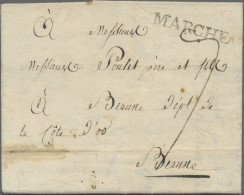 à Messieurs
MARCHE
Messieurs Poulet père et fils
à Beaune Dépt de
la Côte d'or
Beaune